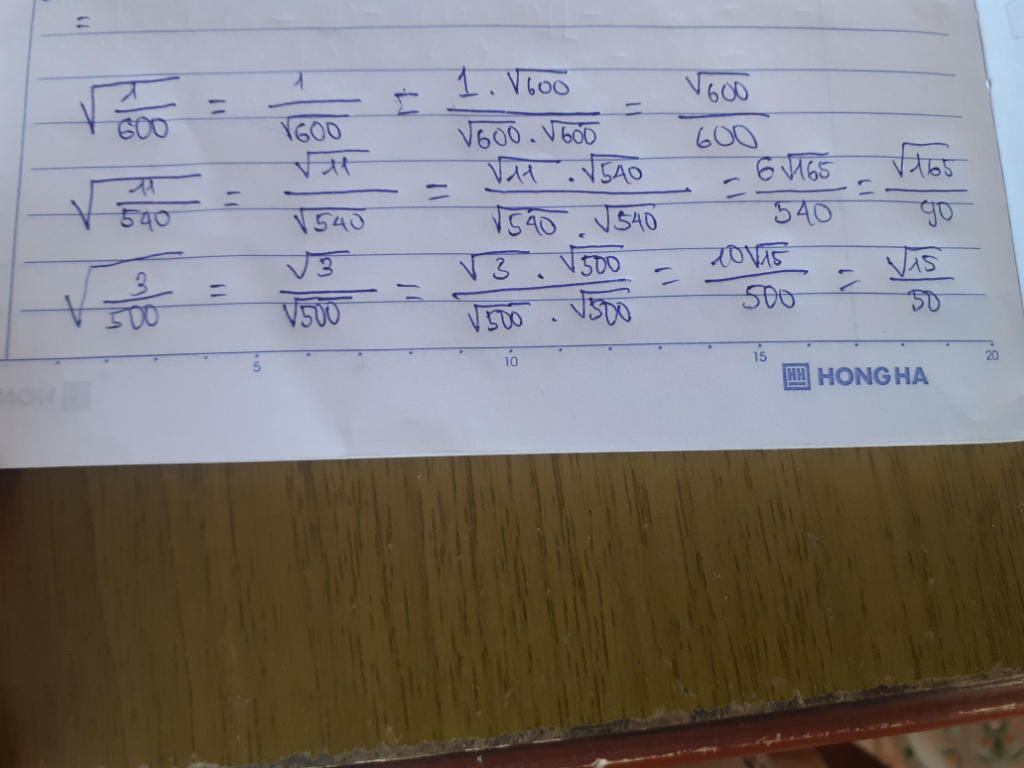 =
√(1/600) = 1/√600 = 1 . √600/√600 . √600 = √600/600
√(11/540) = √11/√540 = √11 . √540/√540 . √540 = 6√165/540 = √165/90
√(3/500) = √3/√500 = √3 . √500/√500 . √500 = 10√15/500 = √15/50
5 10 15 20
HH HONG HA